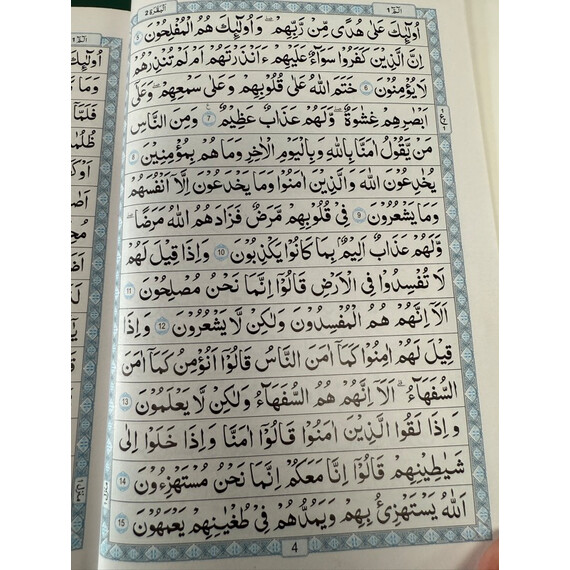 البقرة ٢ الٓمّٓ ١
اُولٰٓئِكَ عَلٰى هُدًى مِّنْ رَّبِّهِمْ وَاُولٰٓئِكَ هُمُ الْمُفْلِحُوْنَ 5
اِنَّ الَّذِيْنَ كَفَرُوْا سَوَآءٌ عَلَيْهِمْ ءَاَنْذَرْتَهُمْ اَمْ لَمْ تُنْذِرْهُمْ
لَا يُؤْمِنُوْنَ 6 خَتَمَ اللّٰهُ عَلٰى قُلُوْبِهِمْ وَعَلٰى سَمْعِهِمْ وَعَلٰٓى
اَبْصَارِهِمْ غِشَاوَةٌ وَّلَهُمْ عَذَابٌ عَظِيْمٌ 7 وَمِنَ النَّاسِ
مَنْ يَّقُوْلُ اٰمَنَّا بِاللّٰهِ وَبِالْيَوْمِ الْاٰخِرِ وَمَا هُمْ بِمُؤْمِنِيْنَ 8
يُخٰدِعُوْنَ اللّٰهَ وَالَّذِيْنَ اٰمَنُوْا وَمَا يَخْدَعُوْنَ اِلَّآ اَنْفُسَهُمْ
وَمَا يَشْعُرُوْنَ 9 فِيْ قُلُوْبِهِمْ مَّرَضٌ فَزَادَهُمُ اللّٰهُ مَرَضًا
وَّلَهُمْ عَذَابٌ اَلِيْمٌ بِمَا كَانُوْا يَكْذِبُوْنَ 10 وَاِذَا قِيْلَ لَهُمْ
لَا تُفْسِدُوْا فِى الْاَرْضِ قَالُوْٓا اِنَّمَا نَحْنُ مُصْلِحُوْنَ 11
اَلَآ اِنَّهُمْ هُمُ الْمُفْسِدُوْنَ وَلٰكِنْ لَّا يَشْعُرُوْنَ 12 وَاِذَا
قِيْلَ لَهُمْ اٰمِنُوْا كَمَآ اٰمَنَ النَّاسُ قَالُوْٓا اَنُؤْمِنُ كَمَآ اٰمَنَ
السُّفَهَآءُ اَلَآ اِنَّهُمْ هُمُ السُّفَهَآءُ وَلٰكِنْ لَّا يَعْلَمُوْنَ 13
وَاِذَا لَقُوا الَّذِيْنَ اٰمَنُوْا قَالُوْٓا اٰمَنَّا وَاِذَا خَلَوْا اِلٰى
شَيٰطِيْنِهِمْ قَالُوْٓا اِنَّا مَعَكُمْ اِنَّمَا نَحْنُ مُسْتَهْزِءُوْنَ 14
اَللّٰهُ يَسْتَهْزِئُ بِهِمْ وَيَمُدُّهُمْ فِيْ طُغْيَانِهِمْ يَعْمَهُوْنَ 15
4